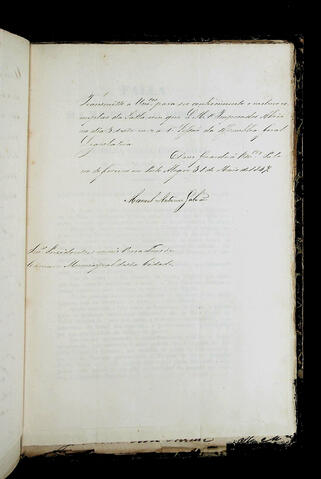 Transmitto a Vm.ces para seu conhecimento
exemplar da Falla com que S. M. o Imperador Abrio
no dia 3 do a 1.ª Sessão da Assemblea Geral
Legislativa.
Deos Guarde a Vm.ces Pala-
cio do Governo em Porto Alegre 31 de Maio de 1847.
Manoel Antonio Galvão
Sn.res Presidente, e mais Vereadores da
Camara Municipal desta Cidade